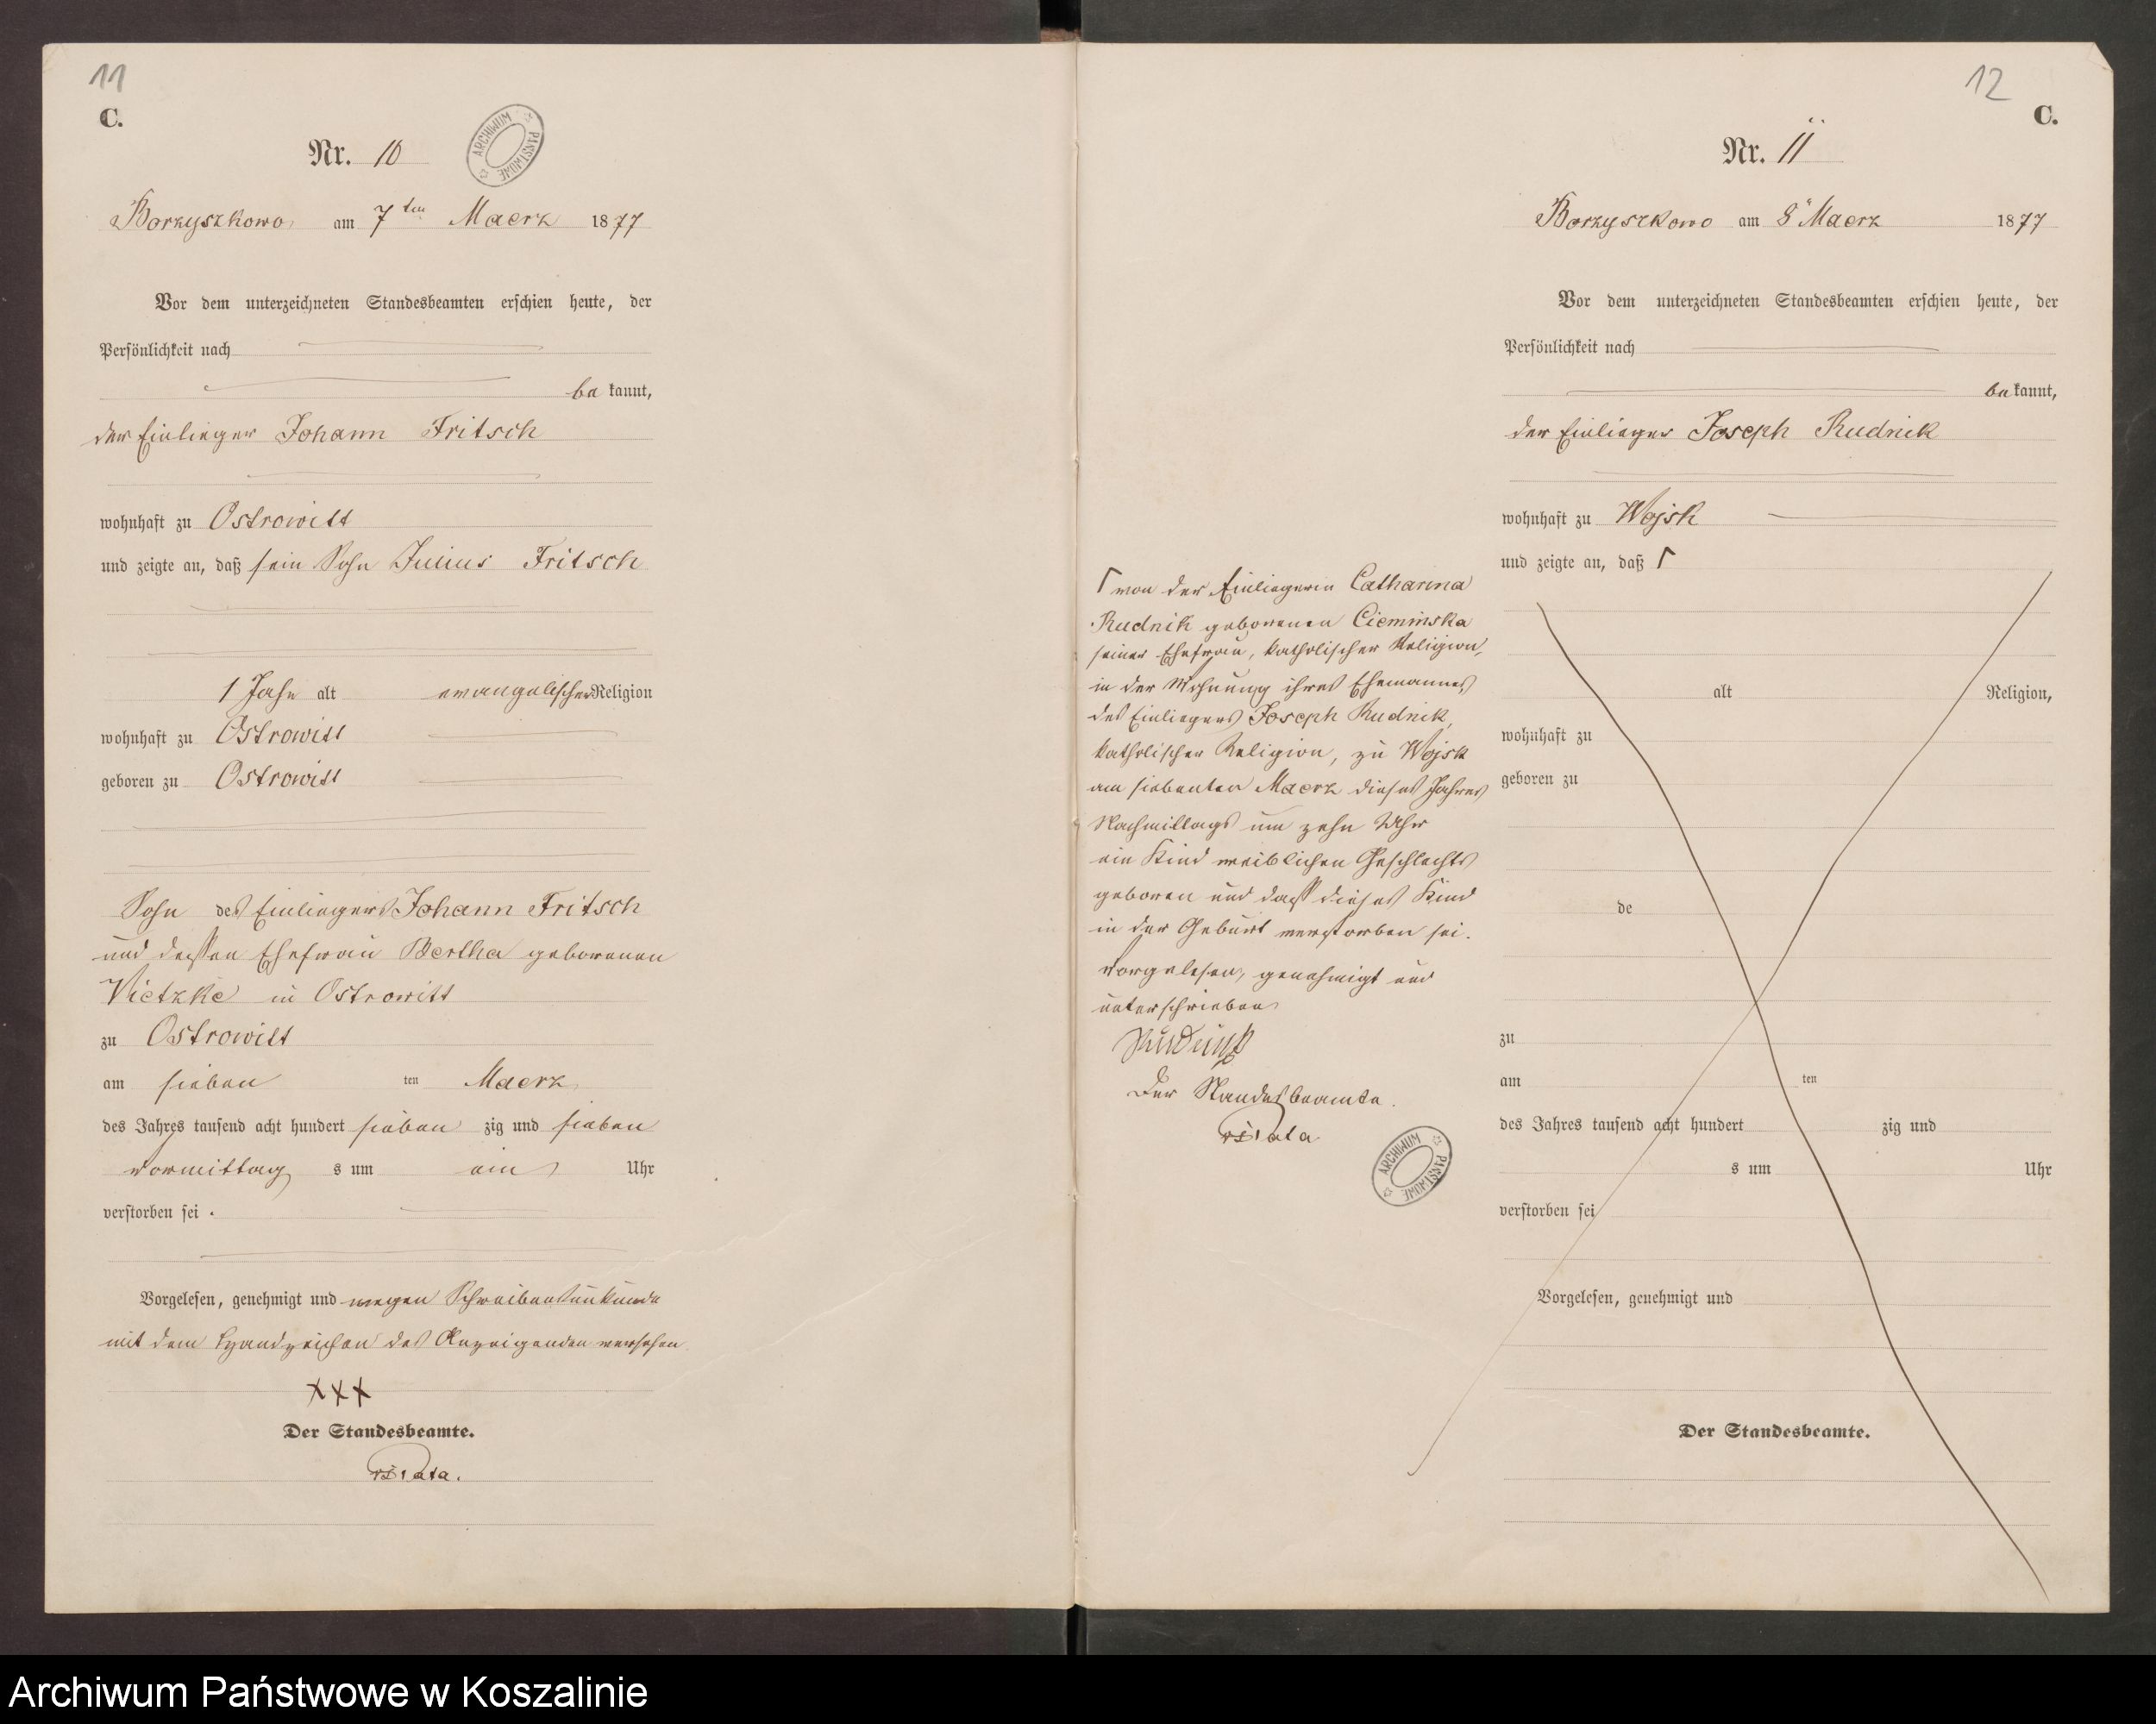 11
C.
Nr. 10
ARCHIWUM PAŃSTWOWE
Borzyszkowo am 7ten Maerz 1877
Vor dem unterzeichneten Standesbeamten erschien heute, der
Persönlichkeit nach
be kannt,
der Einlieger Johann Fritsch
wohnhaft zu Ostrowitt
und zeigte an, daß sein Sohn Julius Fritsch
1 Jahr alt evangelischer Religion
wohnhaft zu Ostrowitt
geboren zu Ostrowitt
Sohn des Einliegers Johann Fritsch
und dessen Ehefrau Bertha geborenen
Vietzke in Ostrowitt
zu Ostrowitt
am sieben ten Maerz
des Jahres tausend acht hundert sieben zig und sieben
Vormittag s um ein Uhr
verstorben sei .
Vorgelesen, genehmigt und wegen Schreibensunkunde
mit dem Handzeichen des Anzeigenden versehen
+++
Der Standesbeamte.
12
C.
Nr. 11
Borzyszkowo am 8 Maerz 1877
Vor dem unterzeichneten Standesbeamten erschien heute, der
Persönlichkeit nach
be kannt,
der Einlieger Joseph Rudnik
wohnhaft zu Wojsk
und zeigte an, daß Γ
Γ von der Einliegerin Catharina
Rudnik geborenen Cieminska
seiner Ehefrau, katholischer Religion,
in der Wohnung ihres Ehemannes
des Einliegers Joseph Rudnik,
katholischer Religion, zu Wojsk
am siebenten Maerz dieses Jahres
Nachmittags um zehn Uhr
ein Kind weiblichen Geschlechts
geboren und dass dieses Kind
in der Geburt verstorben sei.
Vorgelesen, genehmigt und
unterschrieben
Der Standesbeamte.
ARCHIWUM PAŃSTWOWE
alt Religion,
wohnhaft zu
geboren zu
de
zu
am ten
des Jahres tausend acht hundert zig und
s um Uhr
verstorben sei
Vorgelesen, genehmigt und
Der Standesbeamte.
Archiwum Państwowe w Koszalinie